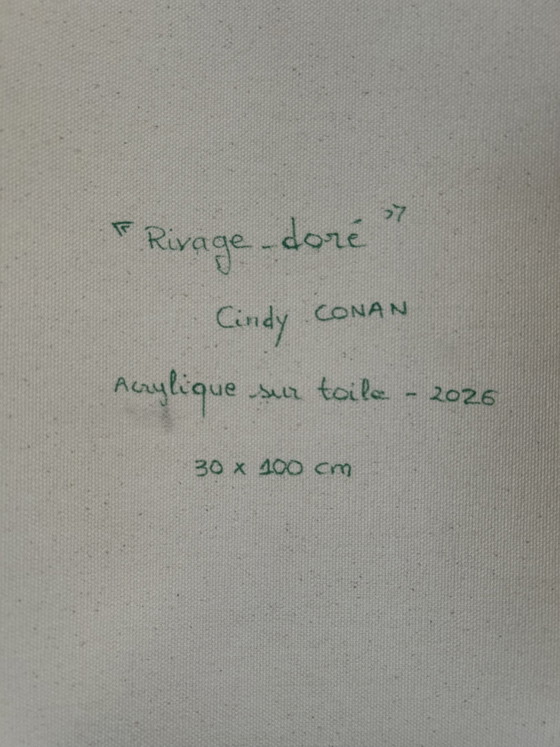 " Rivage doré "
Cindy CONAN
Acrylique sur toile - 2026
30 x 100 cm